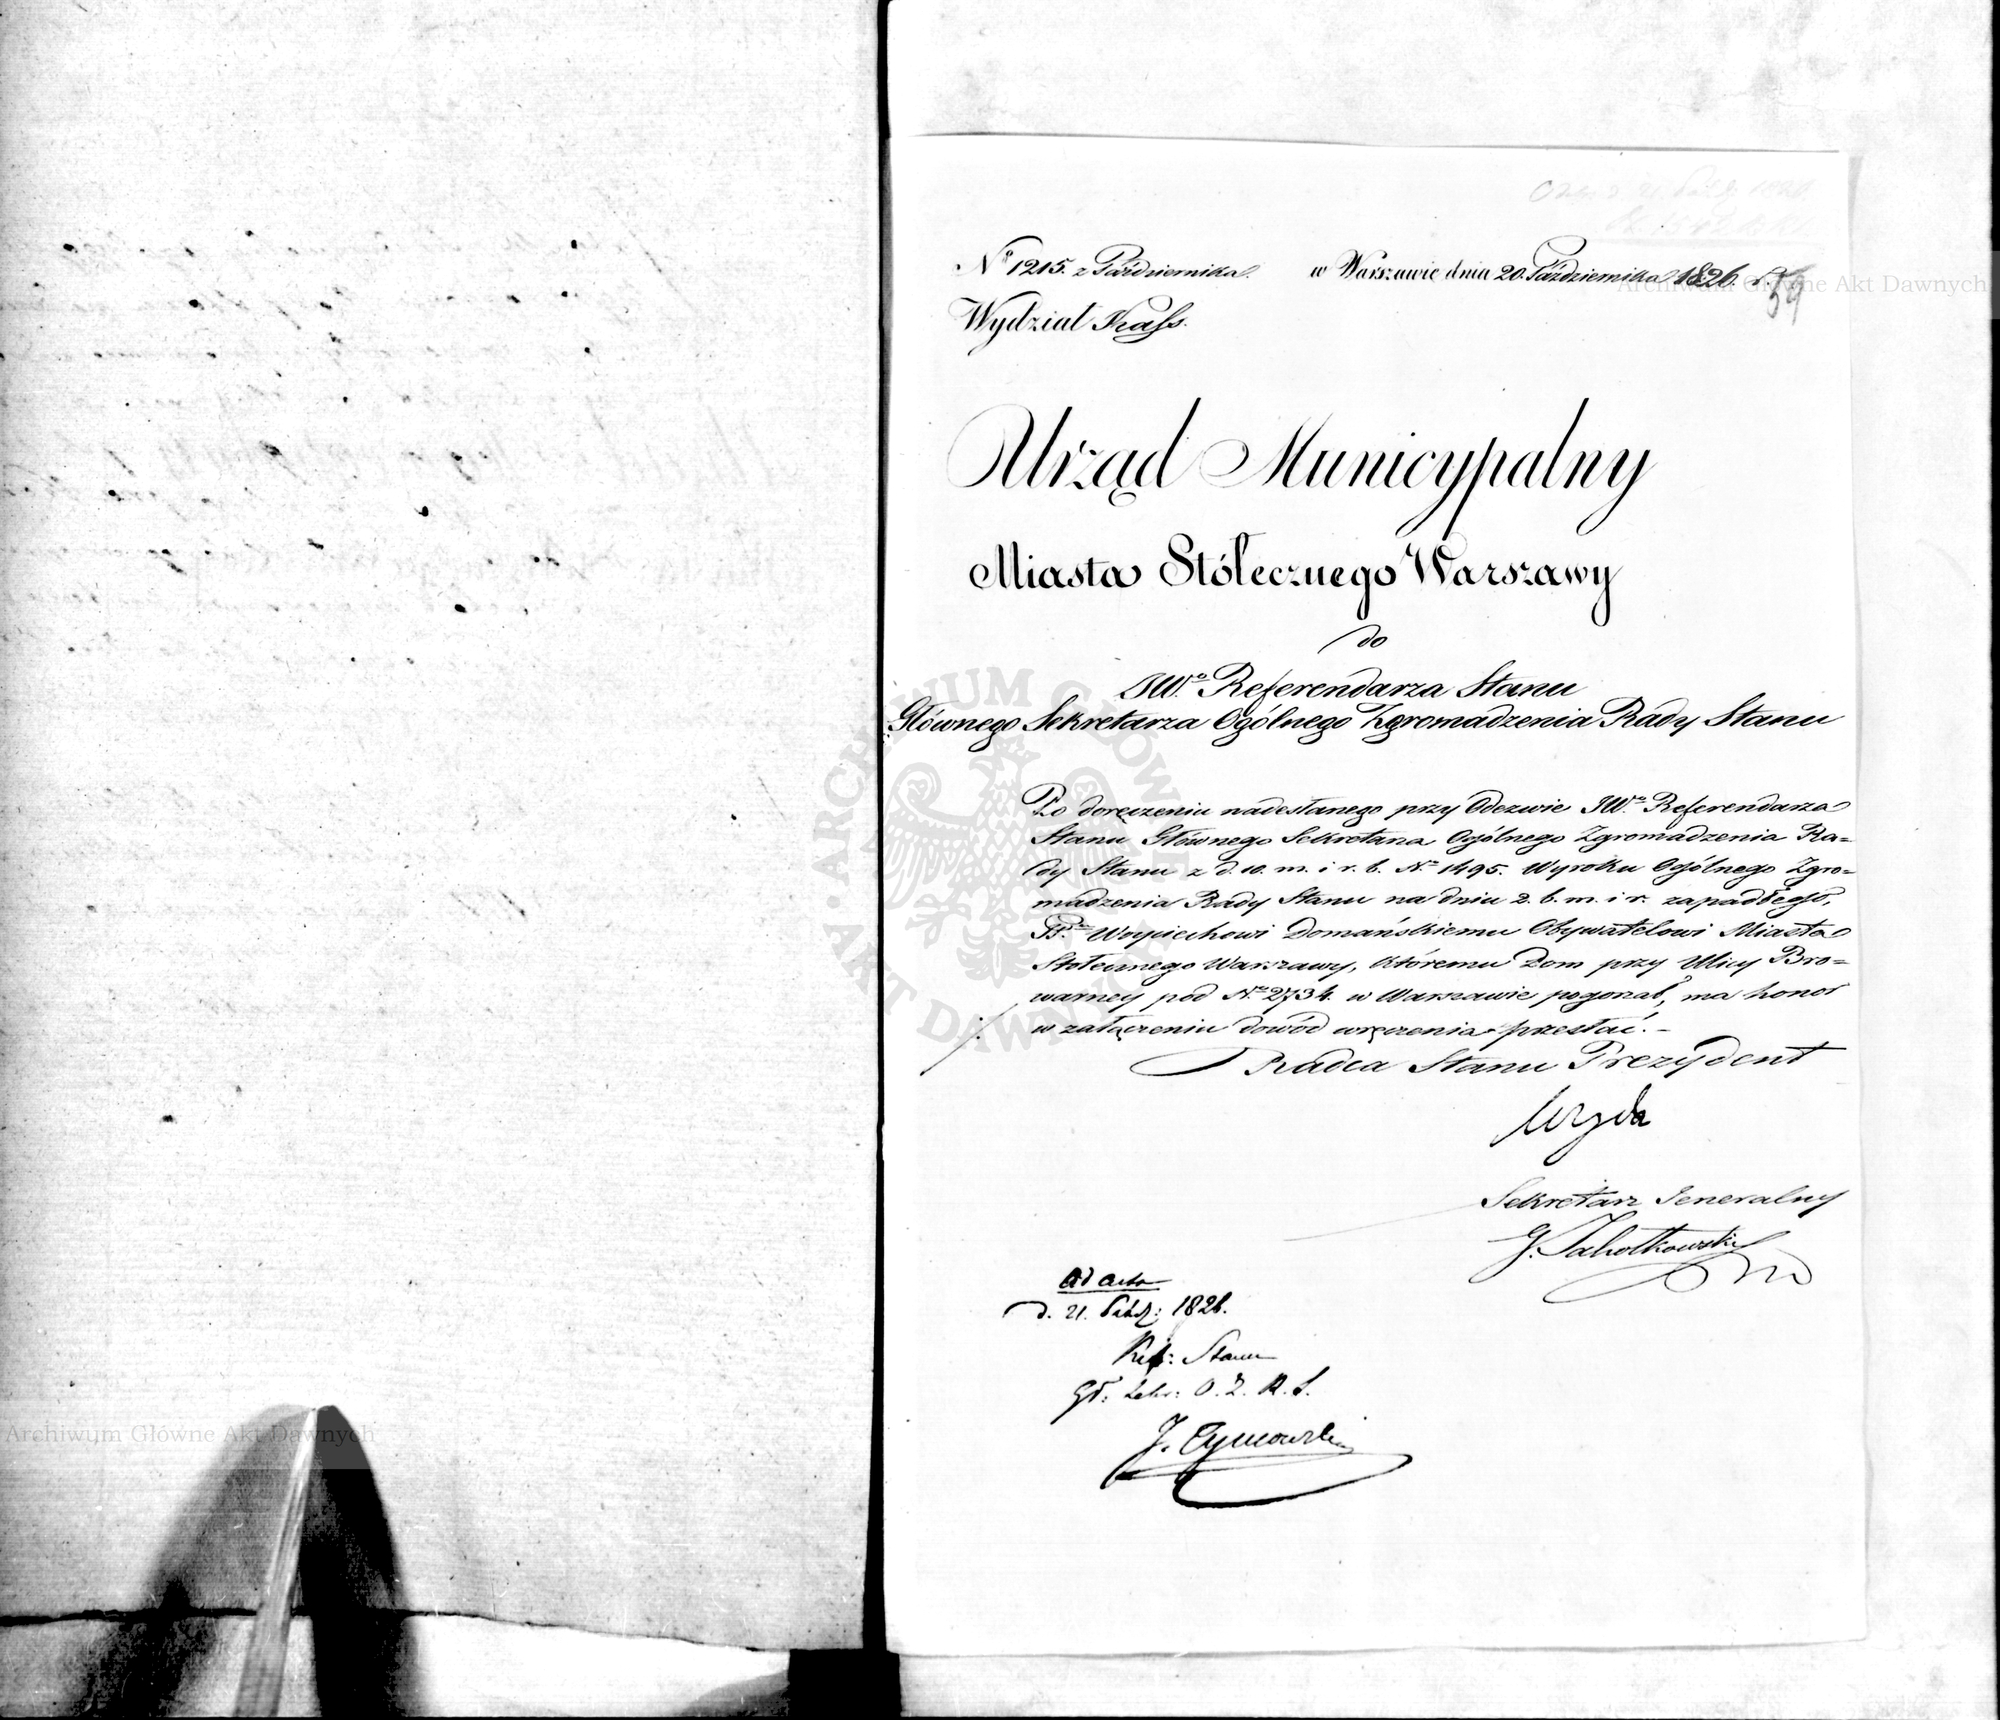 No 1215. z Października. w Warszawie dnia 20. Października 1826. r.
59
Wydział Kass.
Urząd Municypalny
Miasta Stółecznego Warszawy
do
JWo Referendarza Stanu
Głównego Sekretarza Ogólnego Zgromadzenia Rady Stanu
Po doręczeniu nadesłanego przy Odezwie JWo Referendarza
Stanu Głównego Sekretarza Ogólnego Zgromadzenia Ra=
dy Stanu z d. 10. m. i r. b. No 1495. Wyroku Ogólnego Zgro=
madzenia Rady Stanu na dniu 2. b. m. i r. zapadłego,
Woyciechowi Domańskiemu Obywatelowi Miasta
Stołecznego Warszawy, któremu Dom przy Ulicy Bro=
warney pod No 2734. w Warszawie pogorzał, ma honor
w załączeniu dowód wręczenia przesłać. –
Radca Stanu Prezydent
Woyda
Sekretarz Jeneralny
G. Jahołkowski
ad acta
d. 21. Paźdz: 1826.
Ref: Stanu
Gł: Sekr: O. Z. R. S.
J. Tymowski
Archiwum Główne Akt Dawnych
Archiwum Główne Akt Dawnych
ARCHIWUM GŁÓWNE AKT DAWNYCH